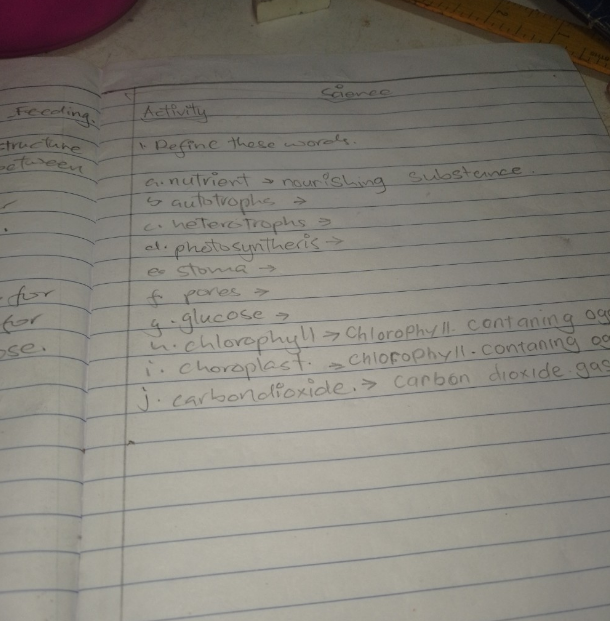 Science
Feeding.
Activity
structure
between
1. Define these words.
a. nutrient → nourishing substance.
b autotrophs →
c. heterotrophs →
d. photosyntheris →
e. stoma →
for
f pores →
for
g. glucose →
ose.
h. chlorophyll → Chlorophyll. contaning
i. choroplast. → Chlorophyll. contaning
j. carbondioxide. → carbon dioxide gas